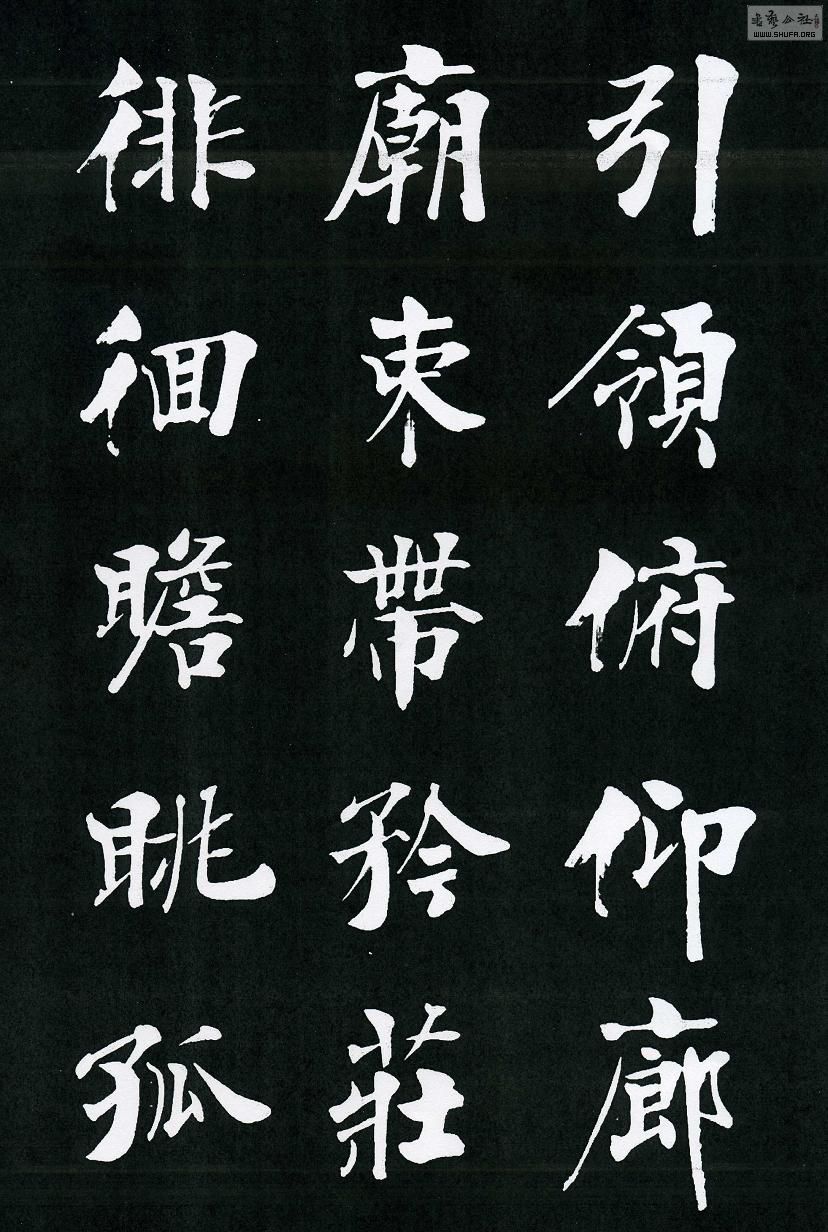 引領俯仰廊
廟束帶矜莊
徘徊瞻眺孤
WWW.SHUFA.ORG